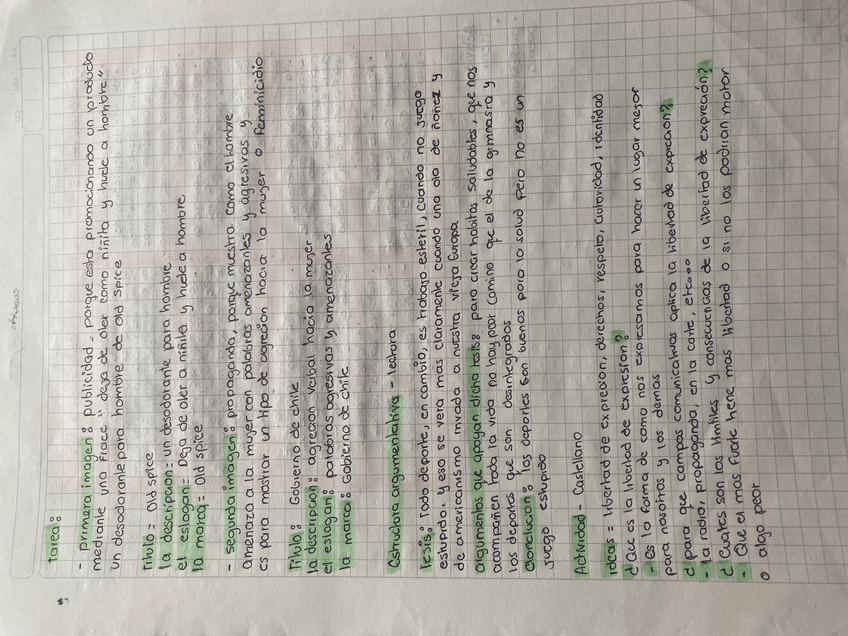 tarea:
- primera imagen: publicidad, porque esta promocionando un producto
mediante una frace "deja de oler como niñita y huele a hombre"
un desodorante para hombre de old spice
titulo = Old spice
la descripcion: un desodorante para hombre
el eslogan: Deja de oler a niñita y huele a hombre
la marca = Old spice
- segunda imagen: propaganda, porque muestra como el hombre
amenaza a la mujer con palabras amenazantes y agresivas y
es para mostrar un tipo de agrecion hacia la mujer o feminicidio
Titulo: Gobierno de chile
la descripcion: agrecion verbal hacia la mujer
el eslogan: palabras agresivas y amenazantes
la marca: Gobierno de chile
Estructura argumentativa - lectora
Tesis: Todo deporte, en cambio, es trabajo esteril, cuando no juego
estupido. y eso se vera mas claramente cuando una ola de ñoñez y
de americanismo invada a nuestra vieja Europa
argumentos que apoyan dicha tesis: para crear habitos saludables, que nos
acompañen toda la vida no hay peor camino que el de la gimnasia y
los deportes que son desintegrados
conclucion: los deportes son buenos para la salud pero no es un
juego estupido
Actividad - Castellano
ideas = libertad de exprecion, derechos, respeto, autoridad, identidad
¿Que es la libertad de expresion?
- Es la forma de como nos expresamos para hacer un lugar mejor
para nosotros y los demas
¿para que campos comunicativos aplica la libertad de exprecion?
- la radio, propaganda, en la corte, etc...
¿Cuales son las limites y consecuencias de la libertad de expreción?
- Que es mas fuerte tiene mas libertad o si no los podrian matar
o algo peor